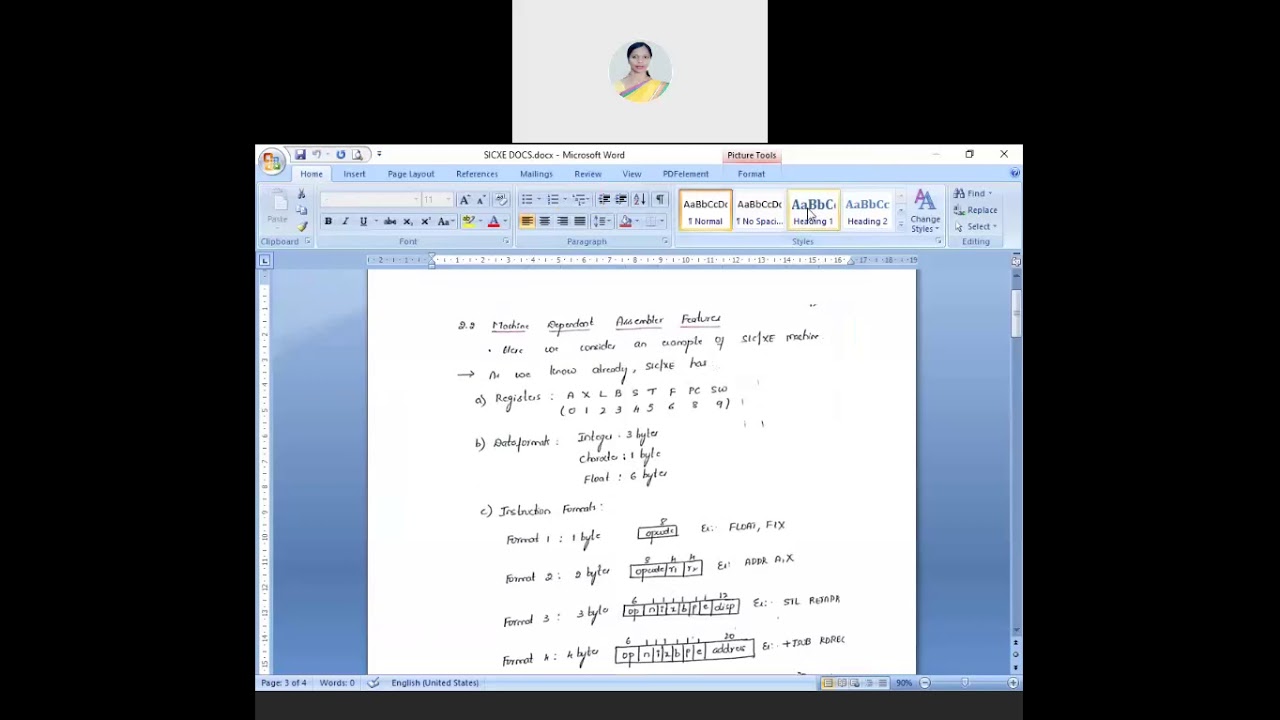 SICXE DOCS.docx - Microsoft Word
Picture Tools
Home Insert Page Layout References Mailings Review View PDFelement Format
Paste
11
AaBbCcDc AaBbCcDc AaBbC AaBbCc
¶ Normal ¶ No Spaci... Heading 1 Heading 2
Change Styles
Find
Replace
Select
Clipboard Font Paragraph Styles Editing
2.2 Machine Dependant Assembler Features
• Here we consider an example of SIC/XE machine
→ As we know already, SIC/XE has
a) Registers : A X L B S T F PC SW
(0 1 2 3 4 5 6 8 9)
b) Dataformats : Integer : 3 bytes
Character : 1 byte
Float : 6 bytes
c) Instruction Formats :
8
Format 1 : 1 byte opcode Ex:- FLOAT, FIX
8 4 4
Format 2 : 2 bytes opcode r1 r2 Ex:- ADDR A,X
6 1 1 1 1 1 1 12
Format 3 : 3 bytes op n i x b p e disp Ex:- STL RETADR
6 1 1 1 1 1 1 20
Format 4 : 4 bytes op n i x b p e address Ex:- +JSUB RDREC
Page: 3 of 4 Words: 0 English (United States) 90%